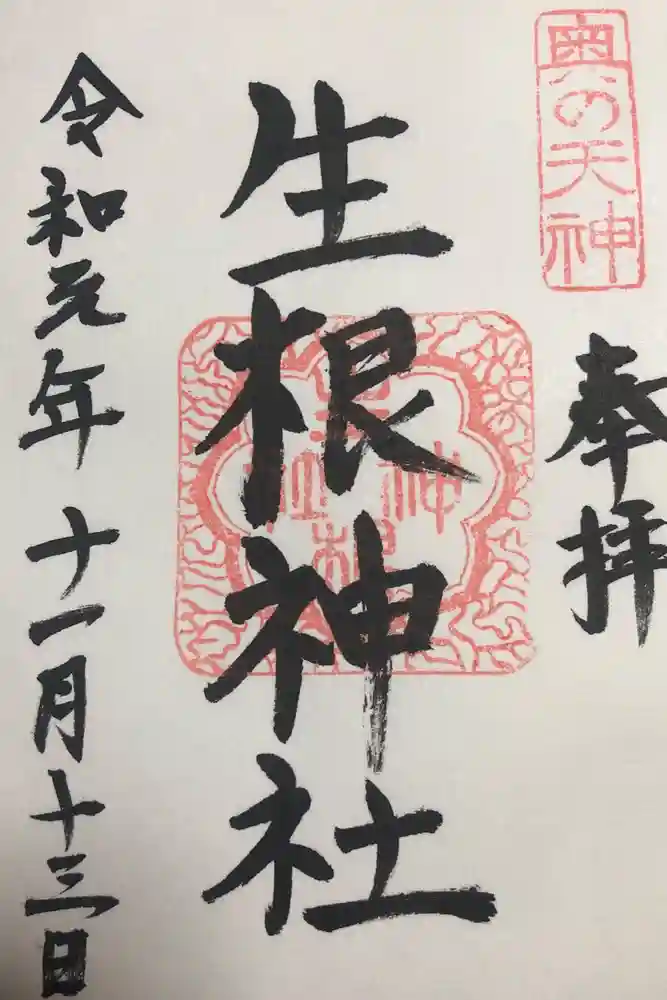 奥の天神
奉拝
生根神社
生根神社
令和元年十一月十三日